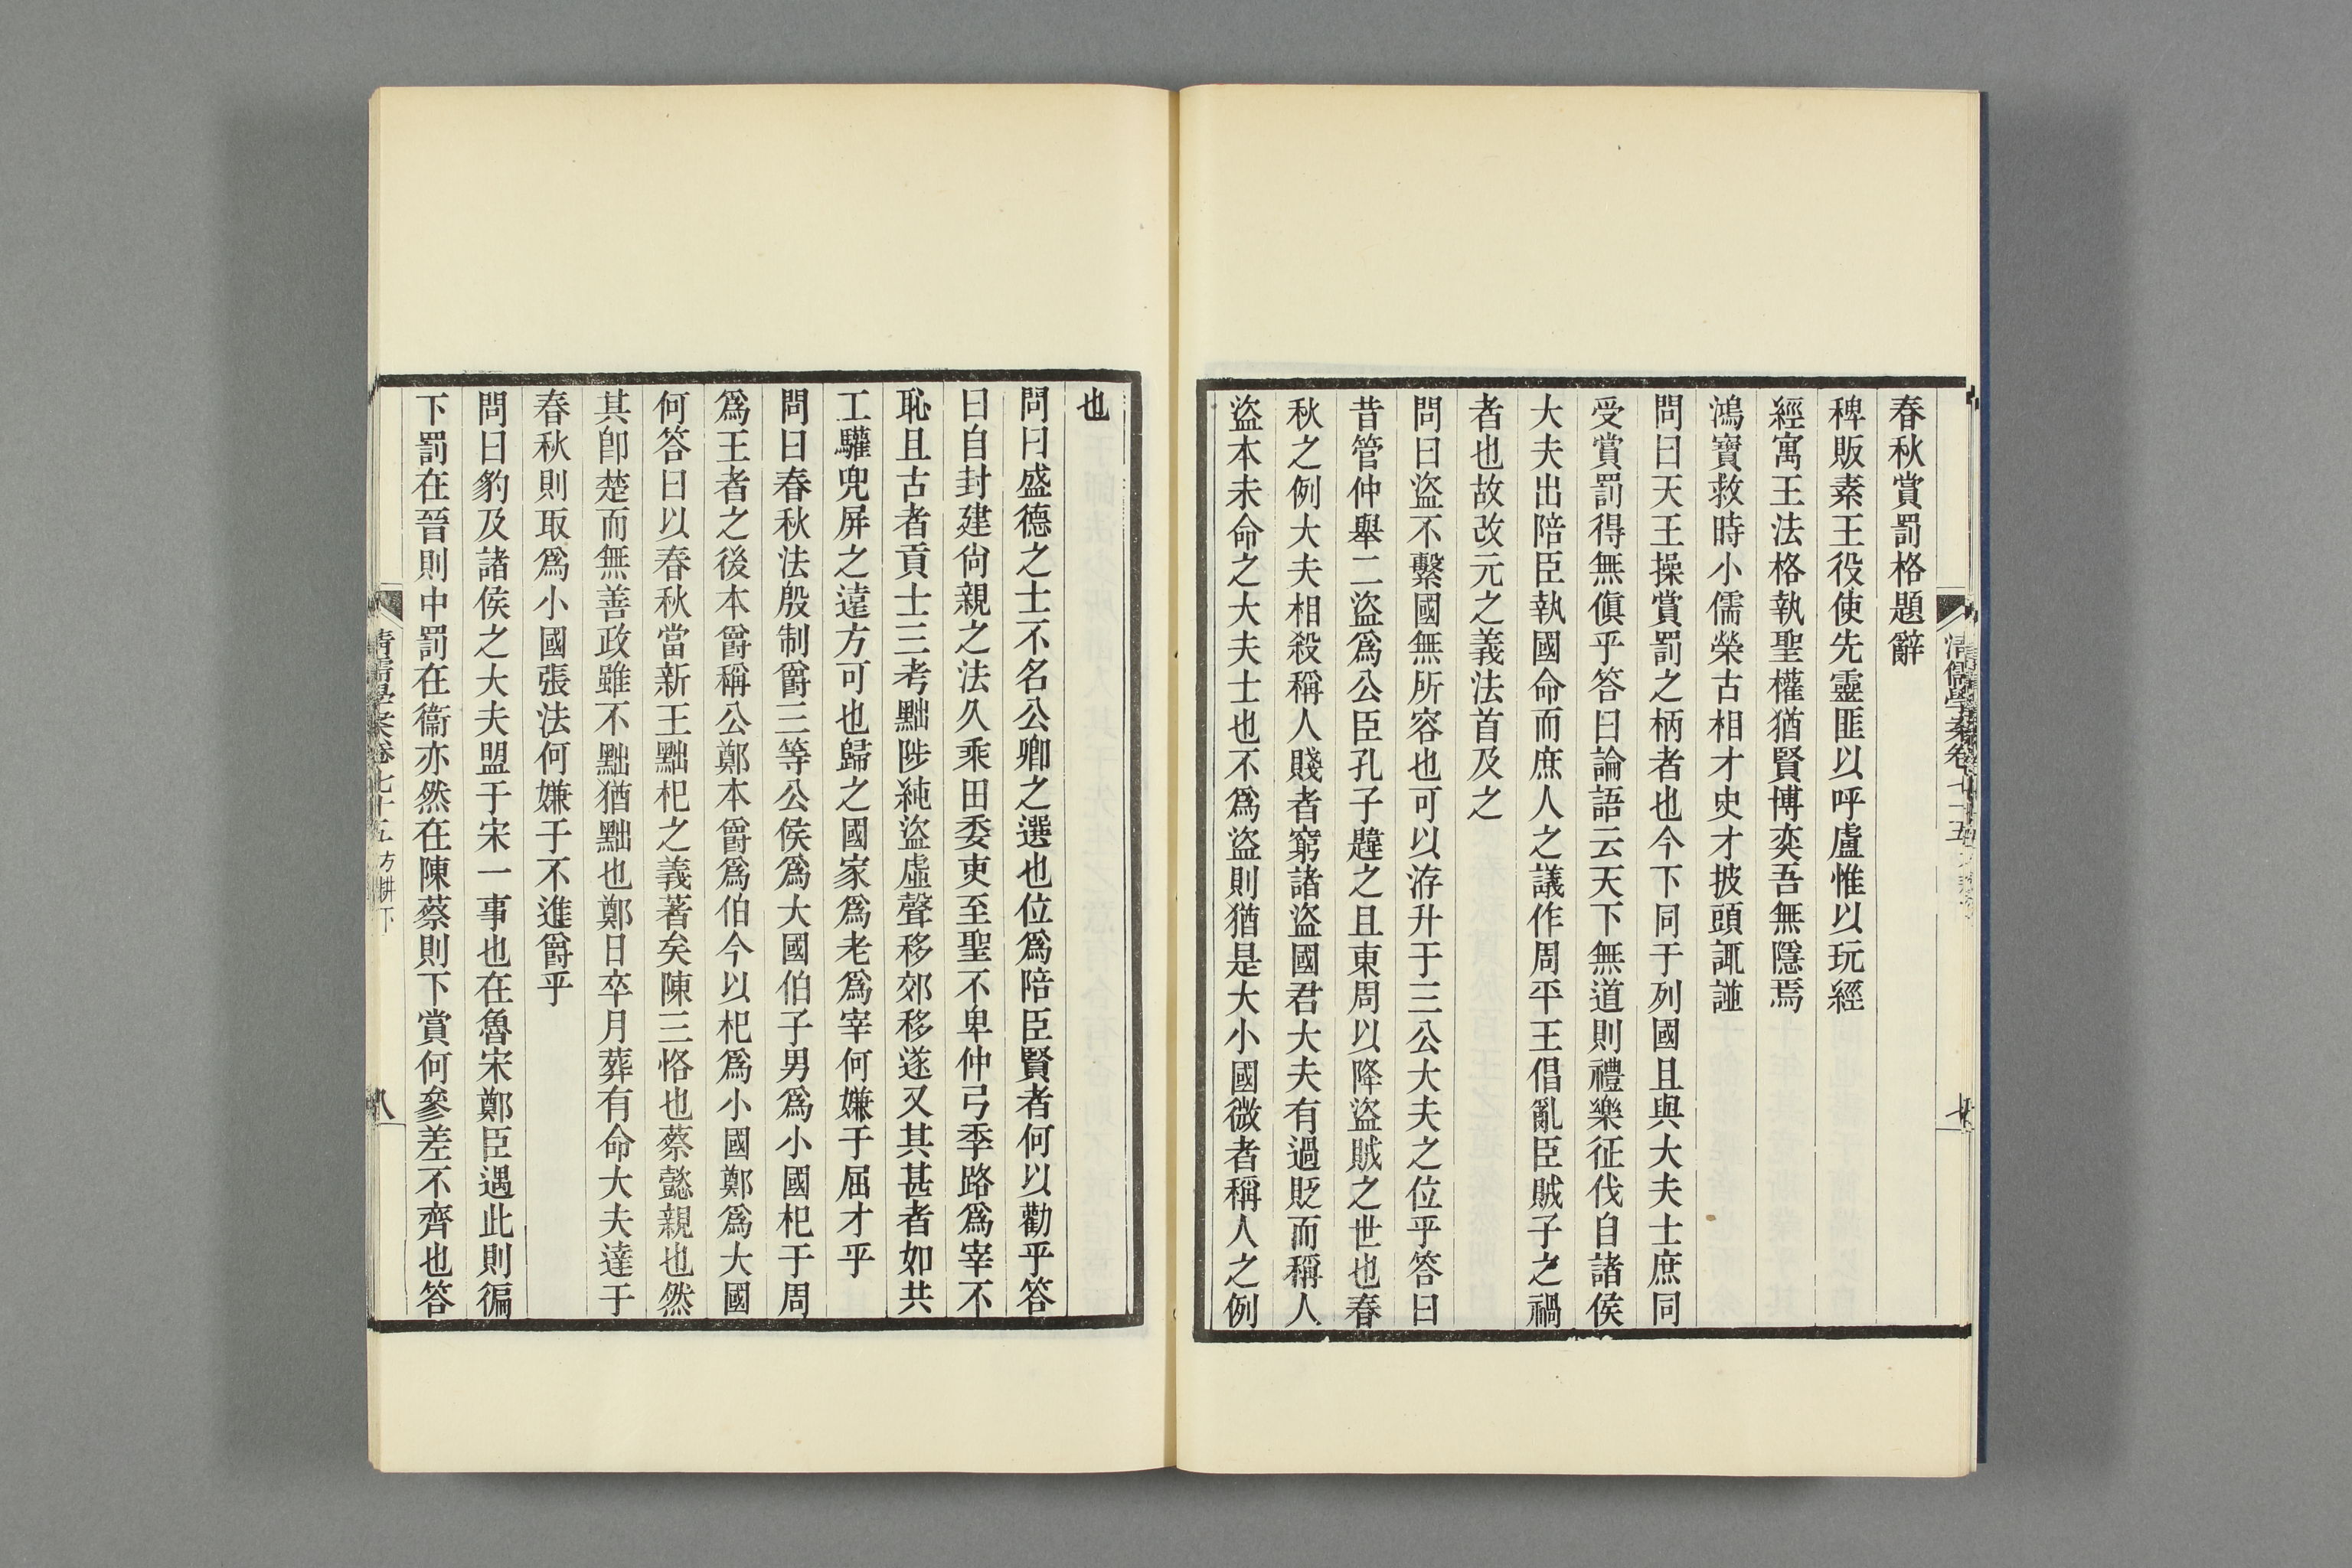 春秋賞罰格題辭
稗販素王役使先靈匪以呼盧惟以玩經
經寓王法格執聖權猶賢博奕吾無隱焉
鴻寶救時小儒榮古相才史才披頭諏諡
問曰天王操賞罰之柄者也今下同于列國且與大夫士庶同
受賞罰得無傎乎答曰論語云天下無道則禮樂征伐自諸侯
大夫出陪臣執國命而庶人之議作周平王倡亂臣賊子之禍
者也故改元之義法首及之
問曰盜不繫國無所容也可以洊升于三公大夫之位乎答曰
昔管仲舉二盜爲公臣孔子韙之且東周以降盜賊之世也春
秋之例大夫相殺稱人賤者窮諸盜國君大夫有過貶而稱人
盜本未命之大夫士也不爲盜則猶是大小國微者稱人之例
也
問曰盛德之士不名公卿之選也位爲陪臣賢者何以勸乎答
曰自封建尙親之法久乘田委吏至聖不卑仲弓季路爲宰不
恥且古者貢士三考黜陟純盜虛聲移郊移遂又其甚者如共
工驩兜屏之遠方可也歸之國家爲老爲宰何嫌于屈才乎
問曰春秋法殷制爵三等公侯爲大國伯子男爲小國杞于周
爲王者之後本爵稱公鄭本爵爲伯今以杞爲小國鄭爲大國
何答曰以春秋當新王黜杞之義著矣陳三恪也蔡懿親也然
其卽楚而無善政雖不黜猶黜也鄭日卒月葬有命大夫達于
春秋則取爲小國張法何嫌于不進爵乎
問曰豹及諸侯之大夫盟于宋一事也在魯宋鄭臣遇此則徧
下罰在晉則中罰在衞亦然在陳蔡則下賞何參差不齊也答
清儒學案卷七十五 方耕下
八